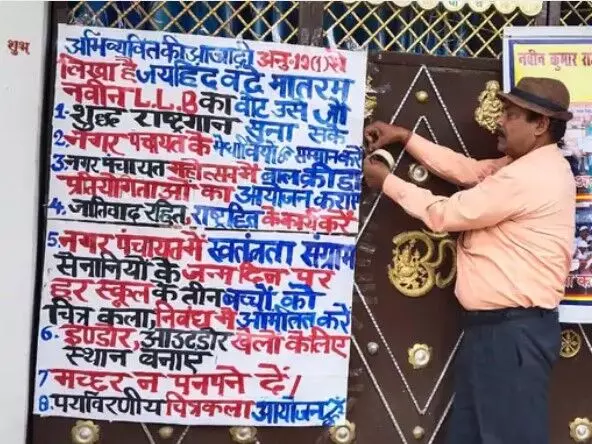 शुभ
अभिव्यक्ति की आजादी अनु-19(1) से
लिखा है जयहिंद वंदे मातरम
नवीन L.L.B का वोट उसे जो
1. शुद्ध राष्ट्रगान सुना सके
2. नगर पंचायत के मेधावियों का सम्मान करें
3. नगर पंचायत महोत्सव में बाल क्रीडा
प्रतियोगिताओं का आयोजन कराए
4. जातिवाद रहित, राष्ट्रहित के कार्य करें
5. नगर पंचायत में स्वतंत्रता संग्राम
सैनानियों के जन्म दिन पर
हर स्कूल के तीन बच्चों को
चित्र कला, निबंध में आमंत्रित करें
6. इण्डोर, आउटडोर खेलों के लिए
स्थान बनाए
7 मच्छर न पनपने दें।
8. पर्यावरणीय चित्रकला आयोजन हूँ
नवीन कुमार